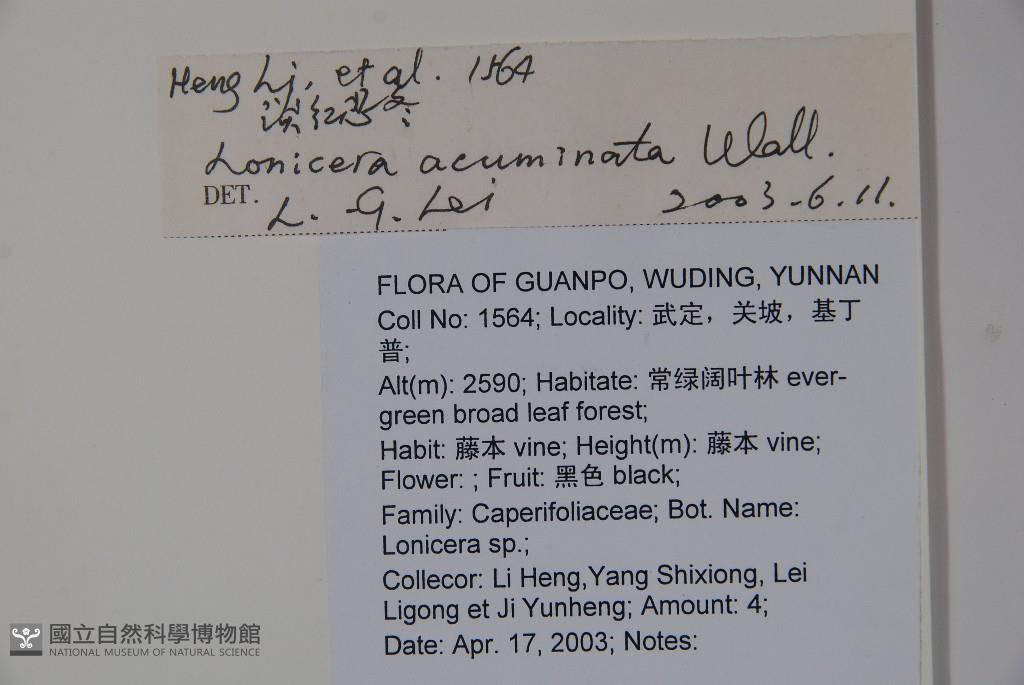 Heng Li, et al. 1564
淡红忍冬
Lonicera acuminata Wall.
DET. L. G. Lei 2003-6.11.
FLORA OF GUANPO, WUDING, YUNNAN
Coll No: 1564; Locality: 武定，关坡，基丁
普;
Alt(m): 2590; Habitate: 常绿阔叶林 ever-
green broad leaf forest;
Habit: 藤本 vine; Height(m): 藤本 vine;
Flower: ; Fruit: 黑色 black;
Family: Caperifoliaceae; Bot. Name:
Lonicera sp.;
Collecor: Li Heng,Yang Shixiong, Lei
Ligong et Ji Yunheng; Amount: 4;
Date: Apr. 17, 2003; Notes:
國立自然科學博物館
NATIONAL MUSEUM OF NATURAL SCIENCE